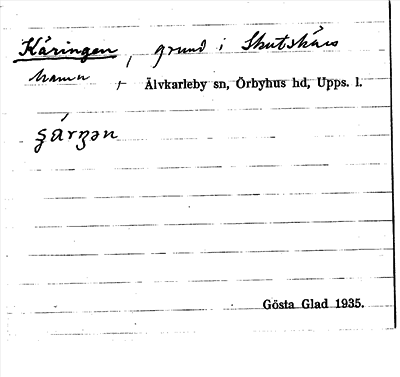 Käringen, grund i Skutskärs
hamn, Älvkarleby sn, Örbyhus hd, Upps. l.
Gösta Glad 1935.